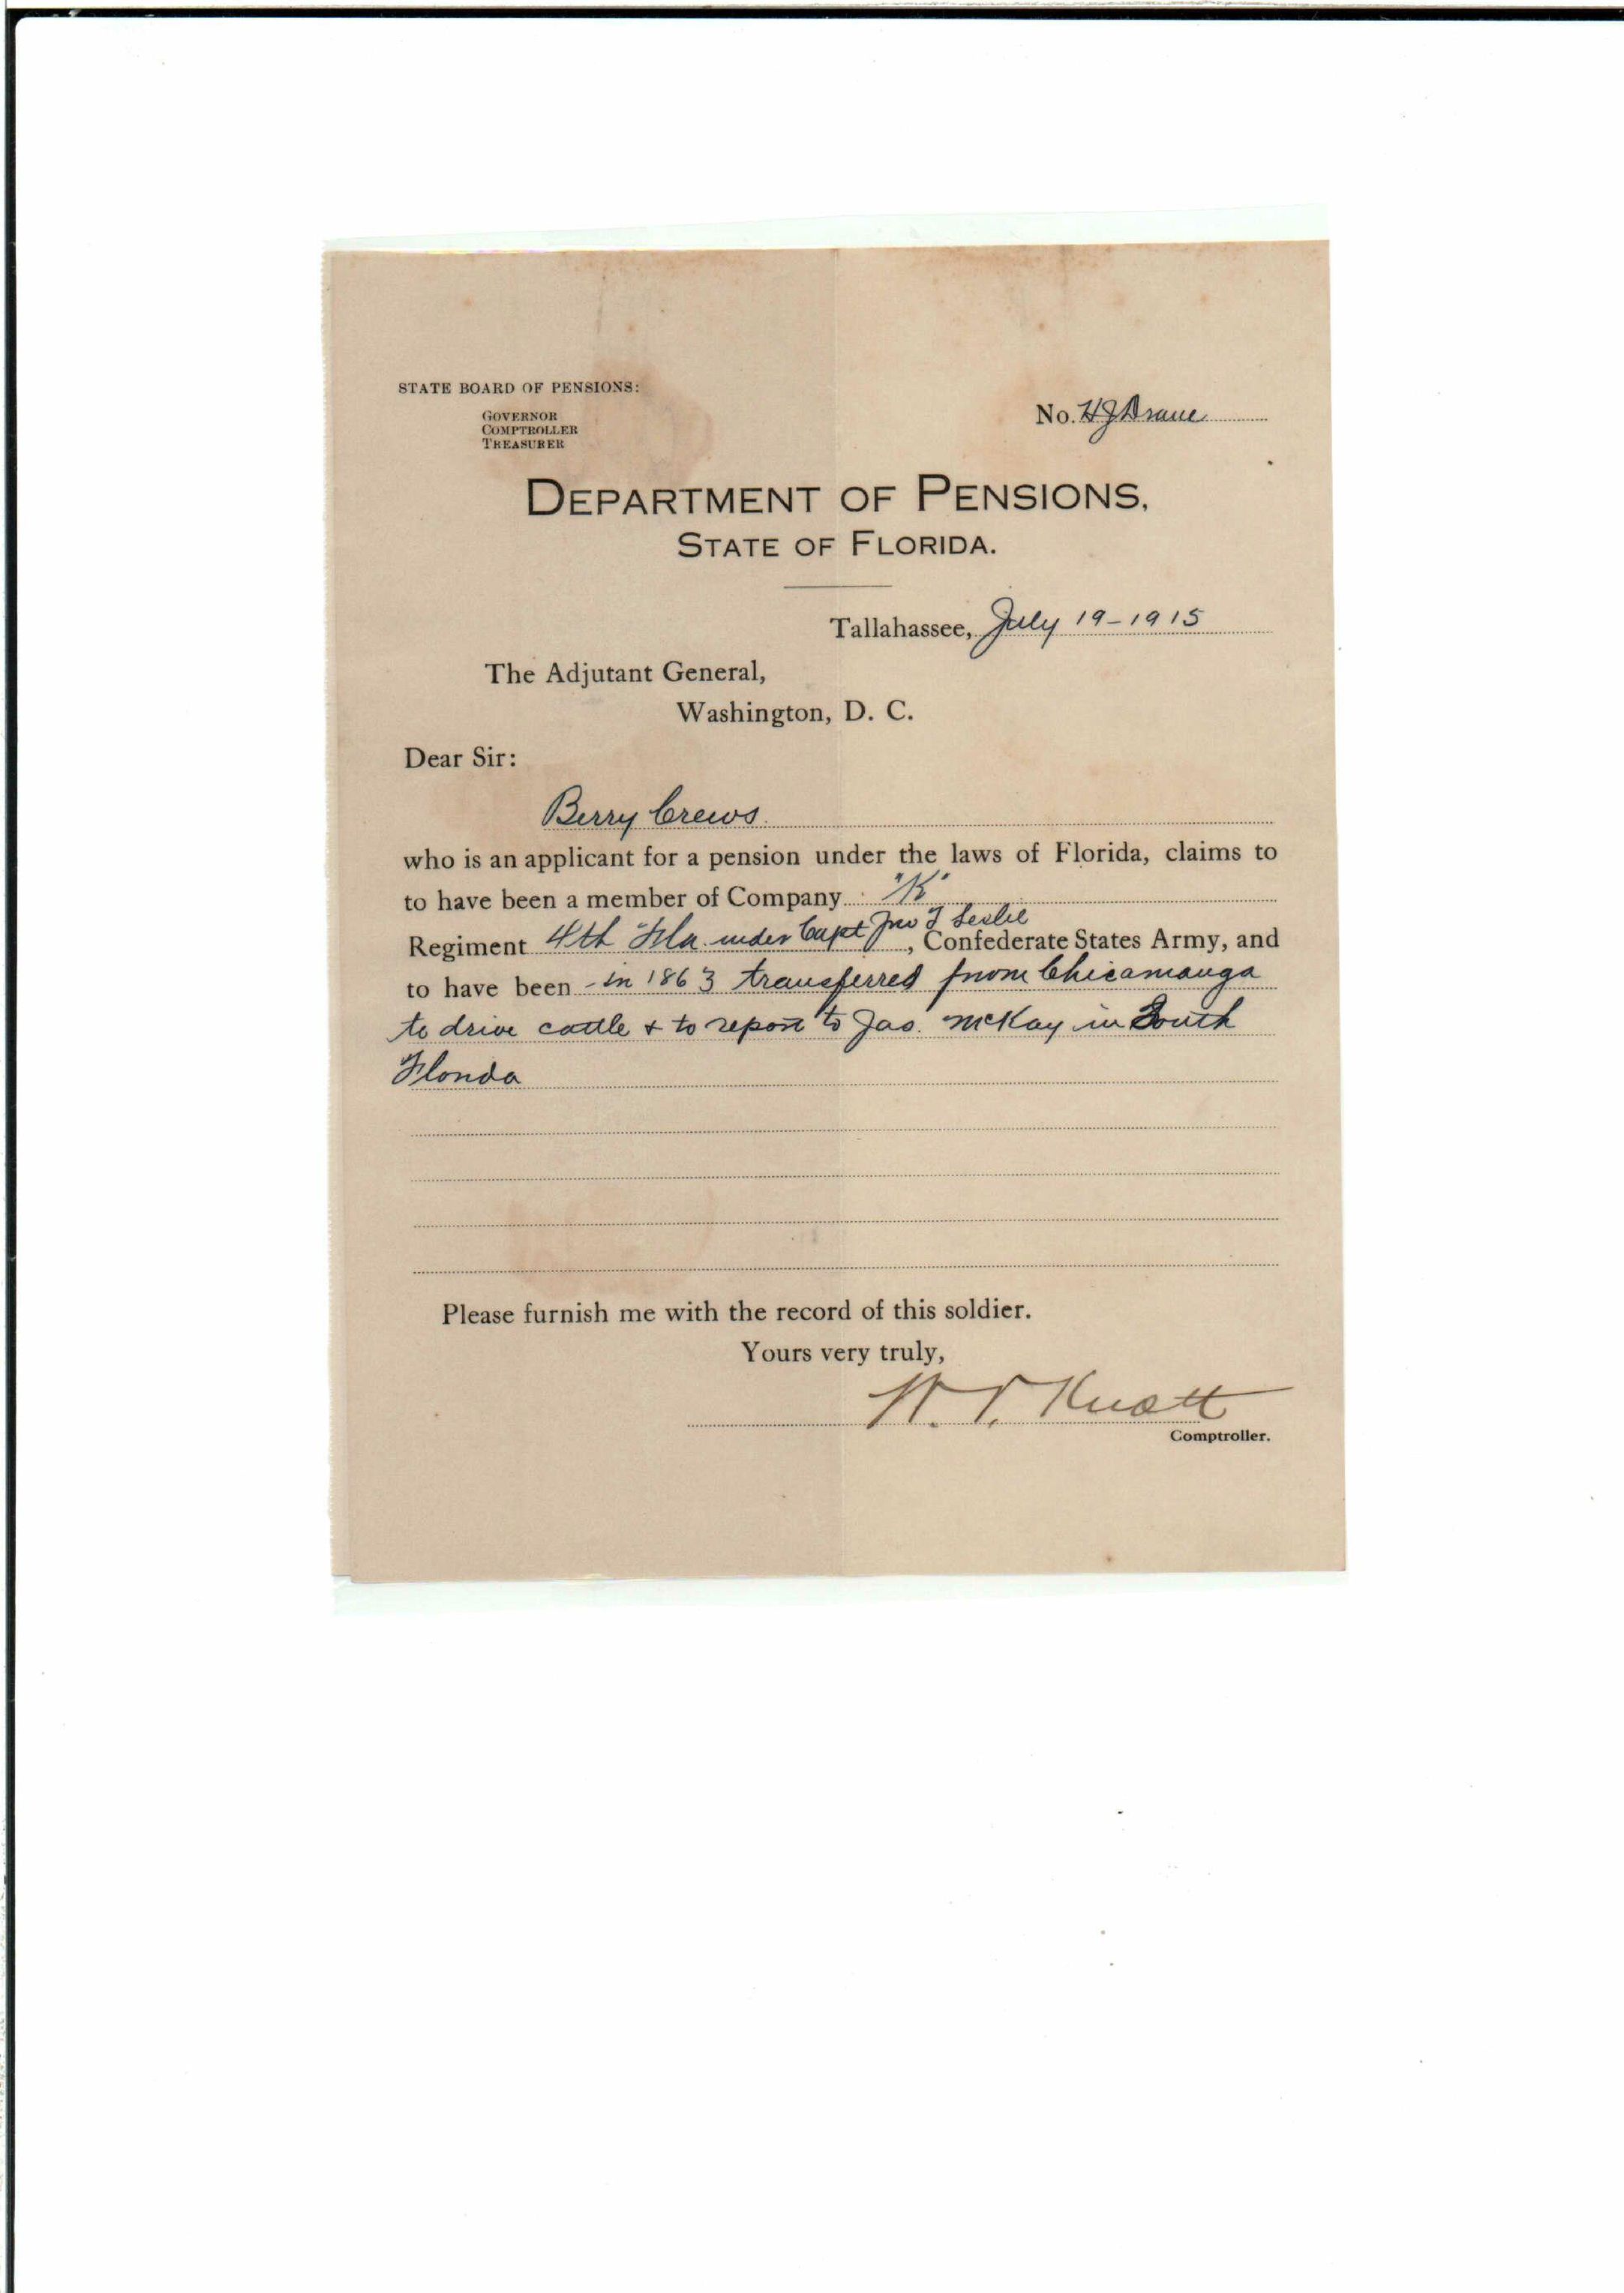 STATE BOARD OF PENSIONS:
GOVERNOR
COMPTROLLER
TREASURER
No. HJDrane
DEPARTMENT OF PENSIONS,
STATE OF FLORIDA.
Tallahassee, July 19-1915
The Adjutant General,
Washington, D. C.
Dear Sir:
Berry Crews
who is an applicant for a pension under the laws of Florida, claims to
to have been a member of Company "K"
Regiment 4th Fla. under Capt Jno T Leslie, Confederate States Army, and
to have been - in 1863 transferred from Chicamauga
to drive cattle & to report to Jas. McKay in South
Florida
Please furnish me with the record of this soldier.
Yours very truly,
W. V. Knott
Comptroller.